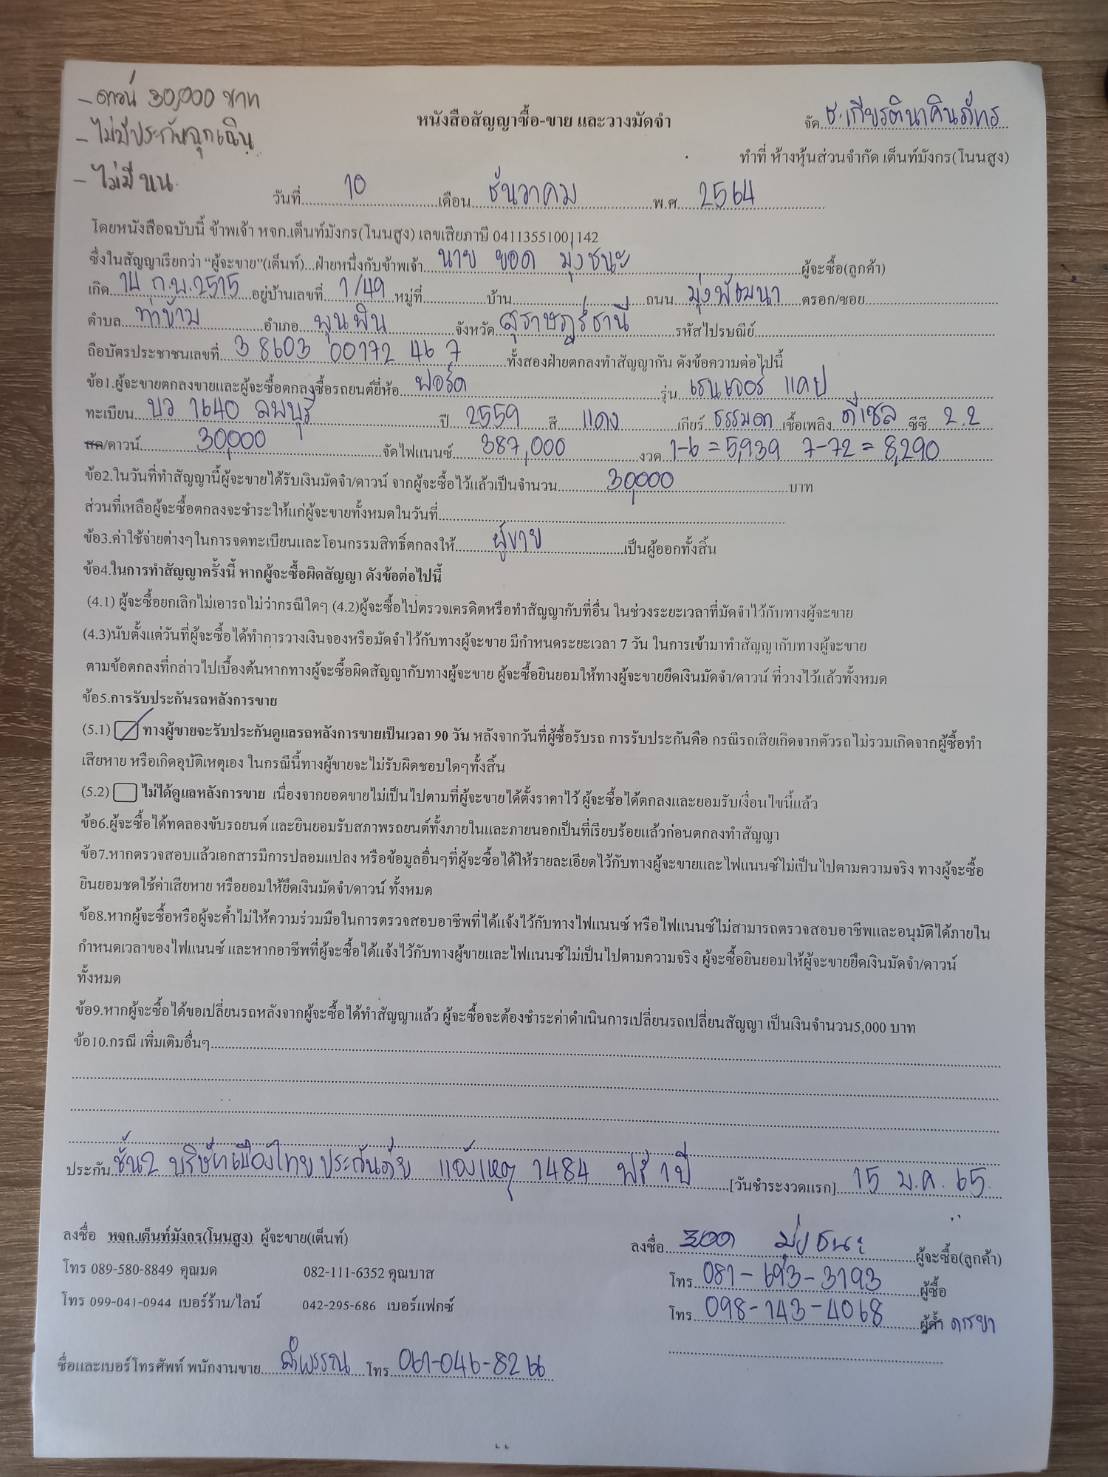 - ดาวน์ 30,000 บาท
- ไม่มีประกันฉุกเฉิน
- ไม่มี
หนังสือสัญญาซื้อ-ขาย และวางมัดจำ
จัด ธ.เกียรตินาคินภัทร
ทำที่ ห้างหุ้นส่วนจำกัด เต็นท์มังกร(โนนสูง)
วันที่ 10 เดือน ธันวาคม พ.ศ. 2564
โดยหนังสือฉบับนี้ ข้าพเจ้า หจก.เต็นท์มังกร(โนนสูง) เลขเสียภาษี 0411355100|142
ซึ่งในสัญญาเรียกว่า “ผู้จะขาย”(เต็นท์)...ฝ่ายหนึ่งกับข้าพเจ้า นาย ยอด มุ่งชนะ ผู้จะซื้อ(ลูกค้า)
เกิด 14 ก.พ. 2515 อยู่บ้านเลขที่ 1/49 หมู่ที่ บ้าน ถนน มุ่งพัฒนา ตรอก/ซอย
ตำบล ท่าข้าม อำเภอ พุนพิน จังหวัด สุราษฎร์ธานี รหัสไปรษณีย์
ถือบัตรประชาชนเลขที่ 3 8603 00172 46 7 ทั้งสองฝ่ายตกลงทำสัญญากัน ดังข้อความต่อไปนี้
ข้อ1.ผู้จะขายตกลงขายและผู้จะซื้อตกลงซื้อรถยนต์ยี่ห้อ ฟอร์ด รุ่น เรนเจอร์ แคป
ทะเบียน บว 1640 ลพบุรี ปี 2559 สี แดง เกียร์ ธรรมดา เชื้อเพลิง ดีเซล ซีซี 2.2
สด/ดาวน์ 30,000 จัดไฟแนนซ์ 387,000 งวด 1-6 = 5,939 7-72 = 8,290
ข้อ2.ในวันที่ทำสัญญานี้ผู้จะขายได้รับเงินมัดจำ/ดาวน์ จากผู้จะซื้อไว้แล้วเป็นจำนวน 30,000 บาท
ส่วนที่เหลือผู้จะซื้อตกลงจะชำระให้แก่ผู้จะขายทั้งหมดในวันที่
ข้อ3.ค่าใช้จ่ายต่างๆในการจดทะเบียนและโอนกรรมสิทธิ์ตกลงให้ ผู้ขาย เป็นผู้ออกทั้งสิ้น
ข้อ4.ในการทำสัญญาครั้งนี้ หากผู้จะซื้อผิดสัญญา ดังข้อต่อไปนี้
(4.1) ผู้จะซื้อยกเลิกไม่เอารถไม่ว่ากรณีใดๆ (4.2)ผู้จะซื้อไปตรวจเครดิตหรือทำสัญญากับที่อื่น ในช่วงระยะเวลาที่มัดจำไว้กับทางผู้จะขาย
(4.3)นับตั้งแต่วันที่ผู้จะซื้อได้ทำการวางเงินจองหรือมัดจำไว้กับทางผู้จะขาย มีกำหนดระยะเวลา 7 วัน ในการเข้ามาทำสัญญากับทางผู้จะขาย
ตามข้อตกลงที่กล่าวไปเบื้องต้นหากทางผู้จะซื้อผิดสัญญากับทางผู้จะขาย ผู้จะซื้อยินยอมให้ทางผู้จะขายยึดเงินมัดจำ/ดาวน์ ที่วางไว้แล้วทั้งหมด
ข้อ5.การรับประกันรถหลังการขาย
(5.1) ทางผู้ขายจะรับประกันดูแลรถหลังการขายเป็นเวลา 90 วัน หลังจากวันที่ผู้ซื้อรับรถ การรับประกันคือ กรณีรถเสียเกิดจากตัวรถ ไม่รวมเกิดจากผู้ซื้อทำ
เสียหาย หรือเกิดอุบัติเหตุเอง ในกรณีนี้ทางผู้ขายจะไม่รับผิดชอบใดๆทั้งสิ้น
(5.2) ไม่ได้ดูแลหลังการขาย เนื่องจากยอดขายไม่เป็นไปตามที่ผู้จะขายได้ตั้งราคาไว้ ผู้จะซื้อได้ตกลงและยอมรับเงื่อนไขนี้แล้ว
ข้อ6.ผู้จะซื้อได้ทดลองขับรถยนต์ และยินยอมรับสภาพรถยนต์ทั้งภายในและภายนอกเป็นที่เรียบร้อยแล้วก่อนตกลงทำสัญญา
ข้อ7.หากตรวจสอบแล้วเอกสารมีการปลอมแปลง หรือข้อมูลอื่นๆที่ผู้จะซื้อได้ให้รายละเอียดไว้กับทางผู้จะขายและไฟแนนซ์ไม่เป็นไปตามความจริง ทางผู้จะซื้อ
ยินยอมชดใช้ค่าเสียหาย หรือยอมให้ยึดเงินมัดจำ/ดาวน์ ทั้งหมด
ข้อ8.หากผู้จะซื้อหรือผู้จะค้ำไม่ให้ความร่วมมือในการตรวจสอบอาชีพที่ได้แจ้งไว้กับทางไฟแนนซ์ หรือไฟแนนซ์ไม่สามารถตรวจสอบอาชีพและอนุมัติได้ภายใน
กำหนดเวลาของไฟแนนซ์ และหากอาชีพที่ผู้จะซื้อได้แจ้งไว้กับทางผู้ขายและไฟแนนซ์ไม่เป็นไปตามความจริง ผู้จะซื้อยินยอมให้ผู้จะขายยึดเงินมัดจำ/ดาวน์
ทั้งหมด
ข้อ9.หากผู้จะซื้อได้ขอเปลี่ยนรถหลังจากผู้จะซื้อได้ทำสัญญาแล้ว ผู้จะซื้อจะต้องชำระค่าดำเนินการเปลี่ยนรถเปลี่ยนสัญญา เป็นเงินจำนวน5,000 บาท
ข้อ10.กรณี เพิ่มเติมอื่นๆ
ประกัน ชั้น2 บริษัทเมืองไทยประกันภัย แจ้งเหตุ 1484 ฟรี 1 ปี [วันชำระงวดแรก] 15 ม.ค. 65
ลงชื่อ หจก.เต็นท์มังกร(โนนสูง) ผู้จะขาย(เต็นท์)
ลงชื่อ ยอด มุ่งชนะ ผู้จะซื้อ(ลูกค้า)
โทร 089-580-8849 คุณมด 082-111-6352 คุณบาส
โทร 081-693-3193 ผู้ซื้อ
โทร 099-041-0944 เบอร์ร้าน/ไลน์ 042-295-686 เบอร์แฟกซ์
โทร 098-143-4068 ผู้ค้ำ ภรรยา
ชื่อและเบอร์โทรศัพท์ พนักงานขาย ลำพรรณ โทร 061-046-8266